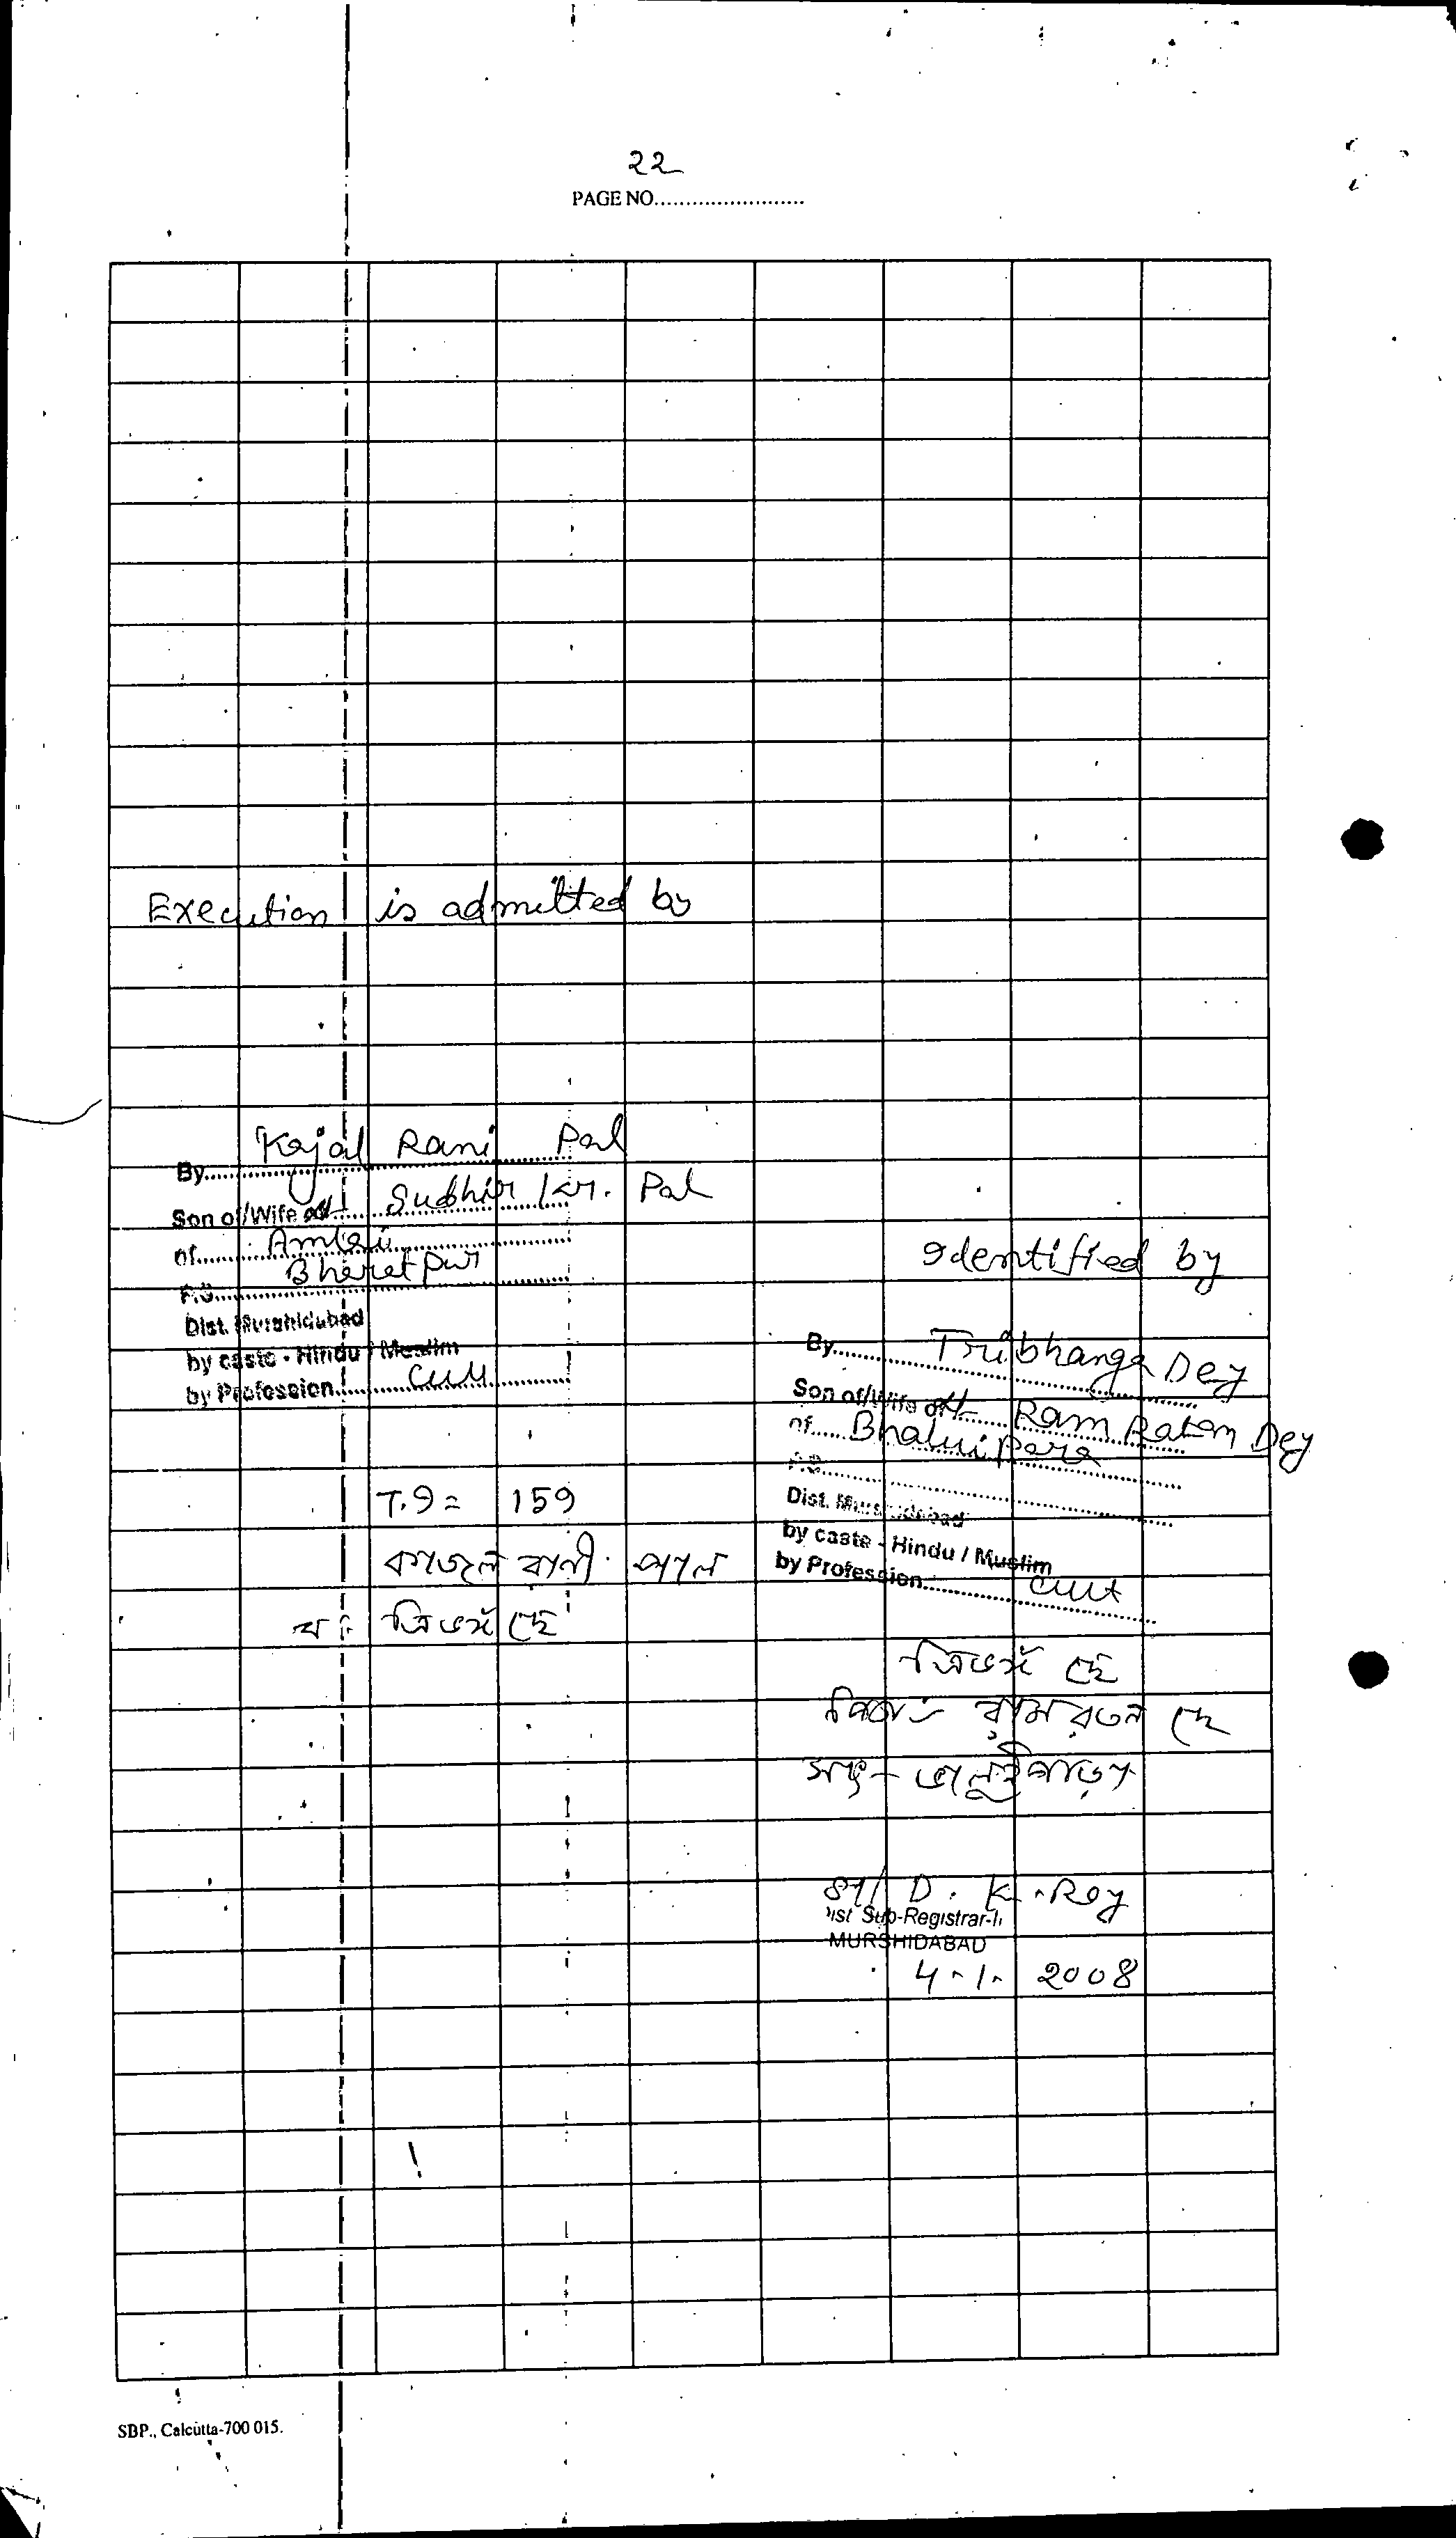 22
PAGE NO.........................
Execution is admitted by
By Kajal Rani Pal
Son of/Wife of Sudhir Kr. Pal
of Amlai
P.S. Bharatpur
Dist. Murshidabad
by caste - Hindu / Muslim
by Profession
Identified by
By Tribhanga Dey
Son of/Wife of Ram Ratan Dey
of Bhaluipara
P.S.
Dist. Murshidabad
by caste - Hindu / Muslim
by Profession
T.9= 159
কাজল রানী পাল
ব: ত্রিভঙ্গ দে
ত্রিভঙ্গ দে
পিতা- রাম রতন দে
সাং- ভালুইপাড়া
Sd/ D. K. Roy
Dist Sub-Registrar-II
MURSHIDABAD
4-1-2008
SBP., Calcutta-700 015.